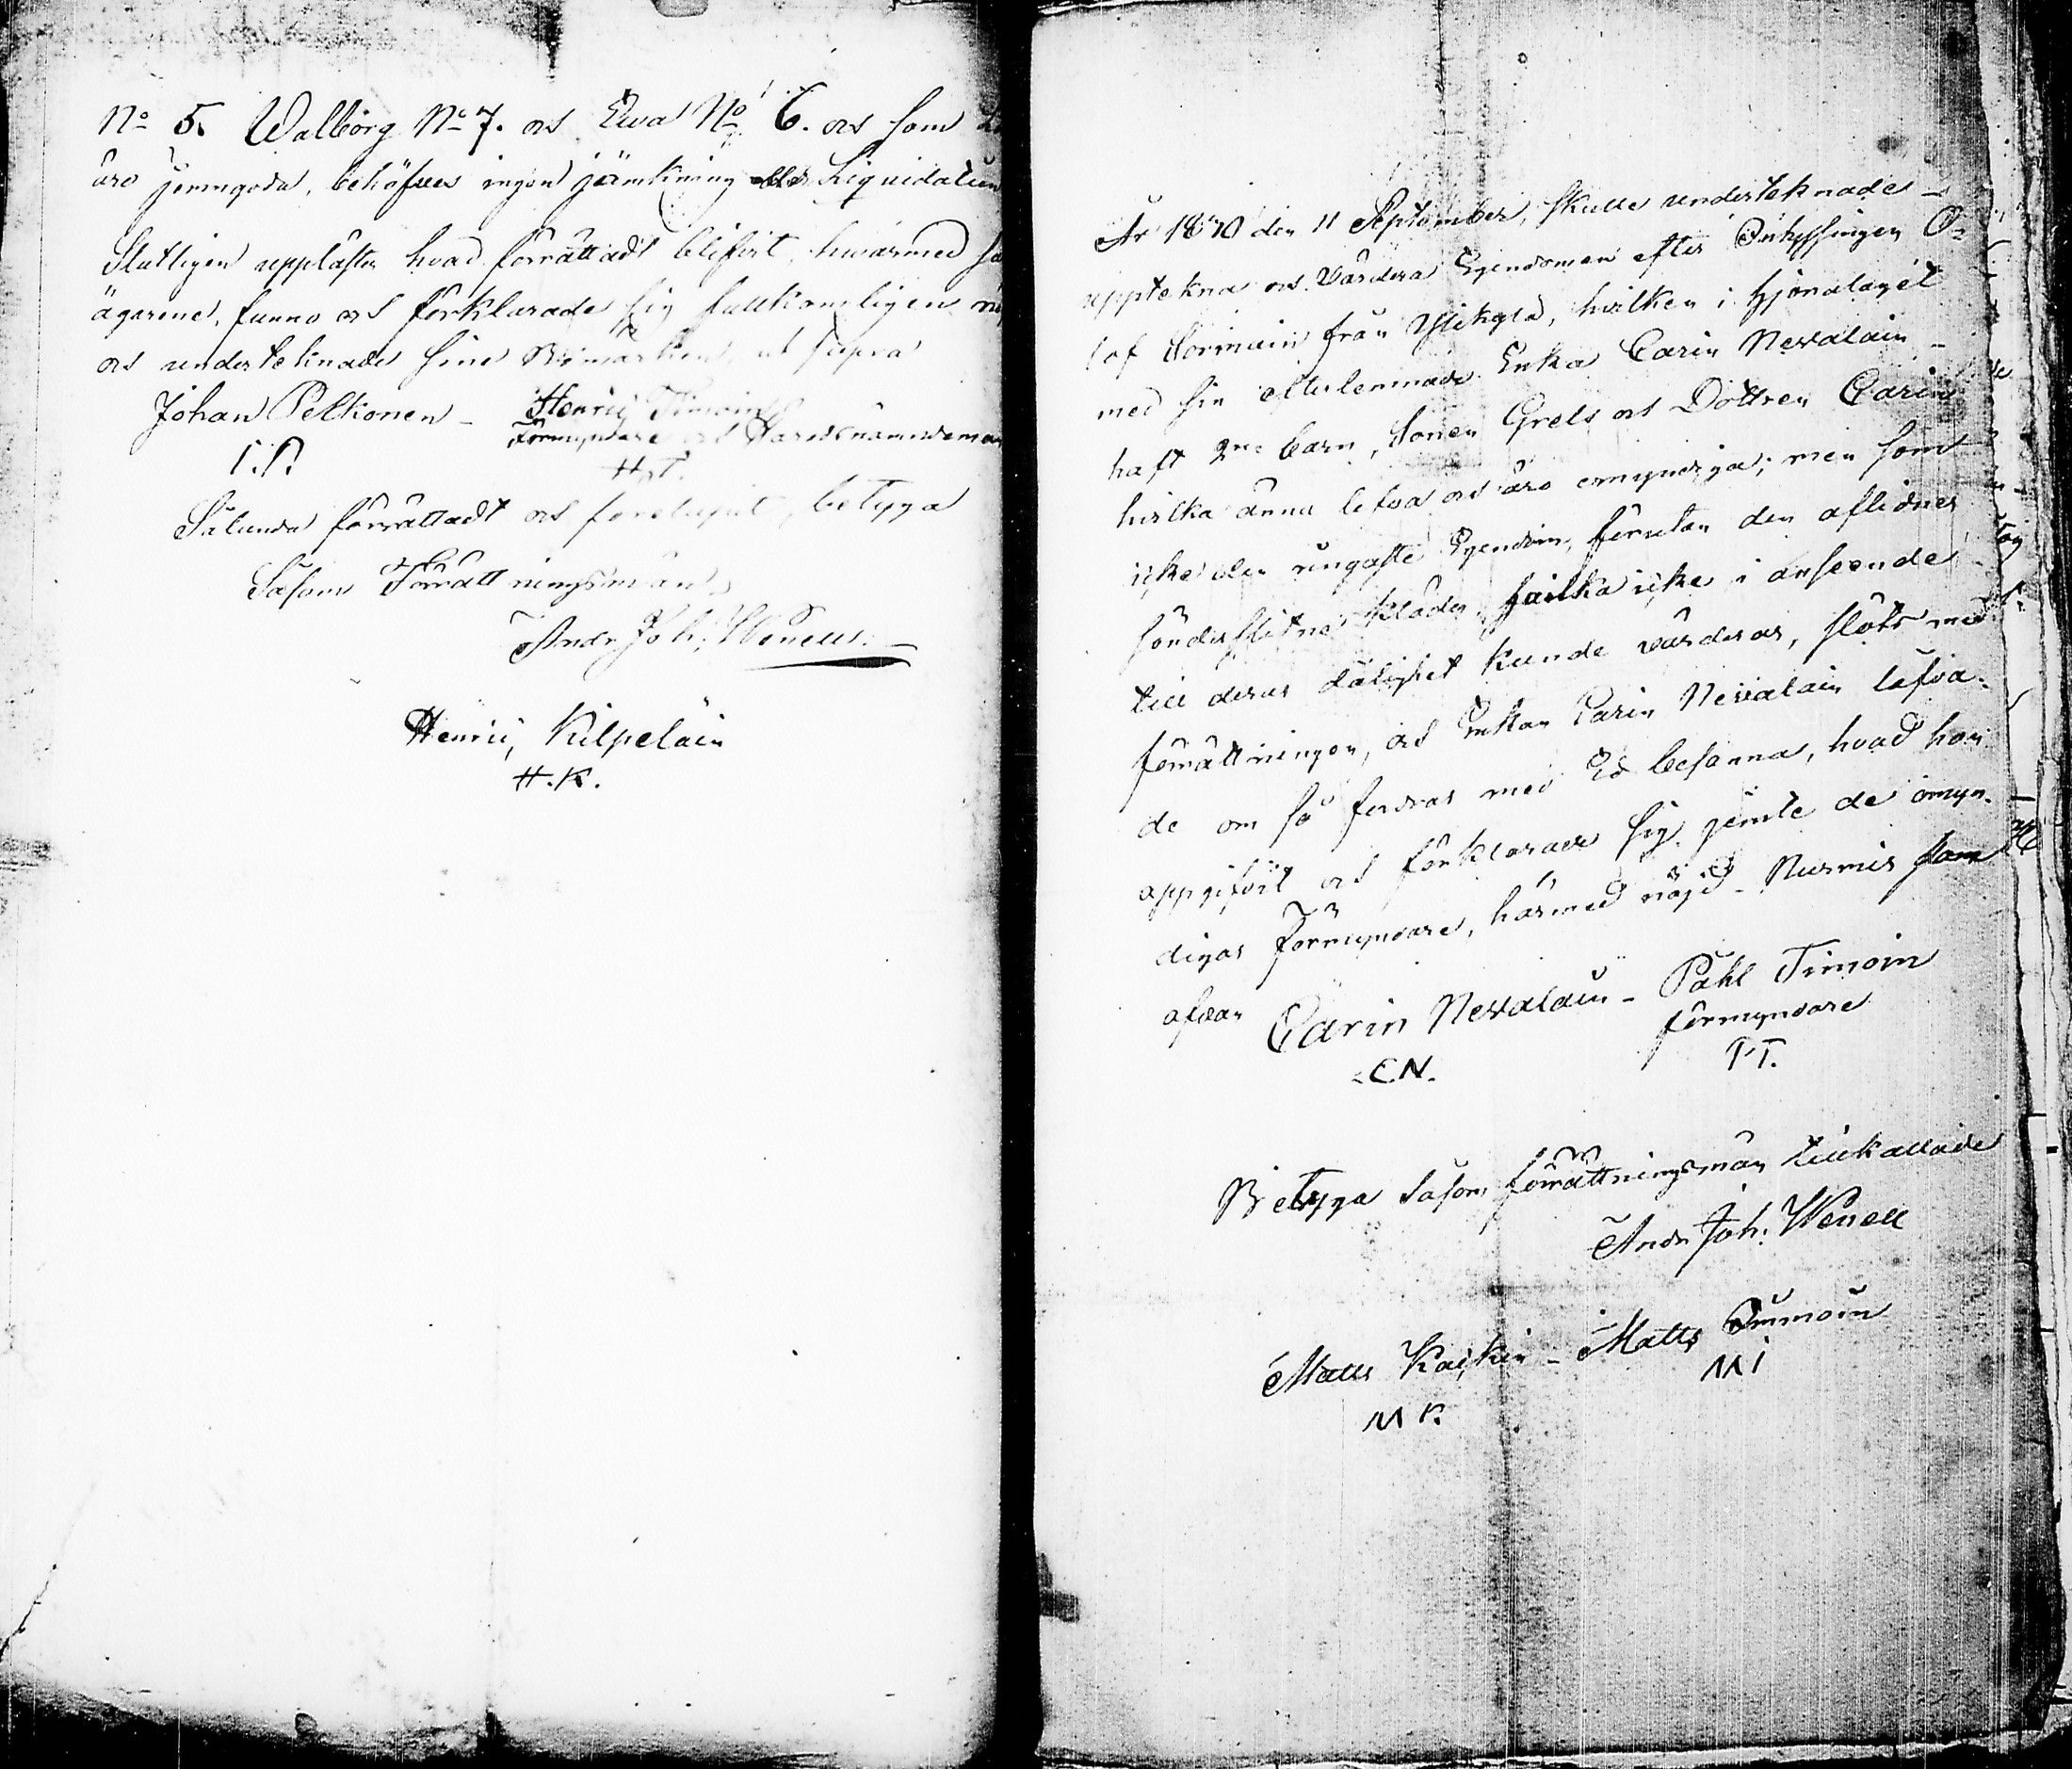 No 5. Walborg No 7. och Ewa No 6. och som
äro jemngoda, behöfves ingen jämkning eller Liquidation
Slutligen upplästes hvad förrättadt blifvit, hwarmed
ägarene, funno och förklarade sig fullkomligen
och undertecknade sine Bomärken ut supra
Johan Pelkonen - Henric Timoin
Förmyndare och Häradsnämndeman
I.P. H.T.
Sålunda förrättadt och föreluppit, betyga
Såsom Förrättningsmän,
Andr. Joh. Wenell.
Henric, Kilpeläin
H.K.
År 1810 den 11 September, skulle undertecknade -
upptekna och Värdera Egendomen efter Inhysingen O=
lof Sormuin från Ylikylä, hvilken i Hjonalaget
med sin efterlemnade Enka Carin Nevalain -
haft 2ne barn, Sonen Grels och Dottren Carin
hvilka ännu lefva och äro omyndiga; men som
icke den ringaste Egendom, förutan den aflidnes
sönderslitne kläder, hvilka icke i anseende
till deras dålighet kunde värderas, slöts med
förrättningen, och Enkan Carin Nevalain lofva=
de om så fordras med Ed besanna, hvad hon
uppgifvit och förklarade sig jemte de omyn=
digas Förmyndare, härmed nöjd - Nurmis som
ofvan Carin Nevalain - Påhl Timoin
förmyndare
C.N. P.T.
Betyga Såsom förrättningsmän tillkallade
Andr. Joh. Wenell
Matts Kaskin - Matts Immoin
M K. M I